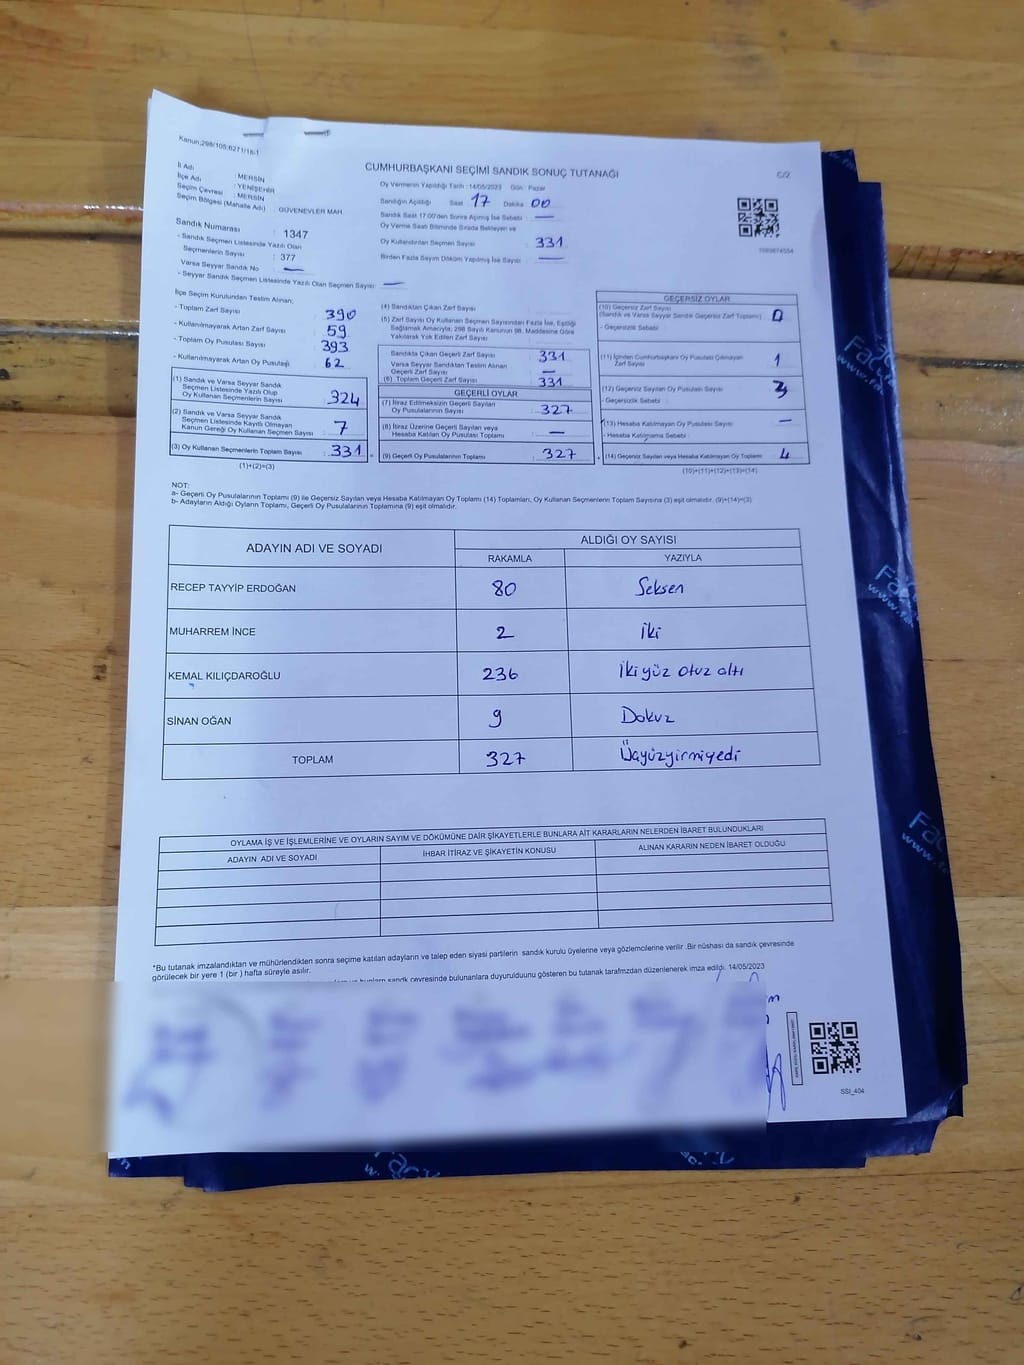 Kanun;298/105;6271/18-1
CUMHURBAŞKANI SEÇİMİ SANDIK SONUÇ TUTANAĞI
C/2
İl Adı : MERSİN
İlçe Adı : YENİŞEHİR
Seçim Çevresi : MERSİN
Seçim Bölgesi (Mahalle Adı) : GÜVENEVLER MAH.
Oy Vermenin Yapıldığı Tarih : 14/05/2023 Gün : Pazar
Sandığın Açıldığı Saat : 17 Dakika : 00
Sandık Saat 17:00'den Sonra Açılmış İse Sebebi : —
Oy Verme Saati Bitiminde Sırada Bekleyen ve
Oy Kullandırılan Seçmen Sayısı : 331
Birden Fazla Sayım Döküm Yapılmış İse Sayısı : —
Sandık Numarası : 1347
- Sandık Seçmen Listesinde Yazılı Olan
Seçmenlerin Sayısı : 377
Varsa Seyyar Sandık No : —
- Seyyar Sandık Seçmen Listesinde Yazılı Olan Seçmen Sayısı : —
İlçe Seçim Kurulundan Teslim Alınan;
- Toplam Zarf Sayısı : 390
- Kullanılmayarak Artan Zarf Sayısı : 59
- Toplam Oy Pusulası Sayısı : 393
- Kullanılmayarak Artan Oy Pusulası : 62
(1) Sandık ve Varsa Seyyar Sandık
Seçmen Listesinde Yazılı Olup
Oy Kullanan Seçmenlerin Sayısı : 324
(2) Sandık ve Varsa Seyyar Sandık
Seçmen Listesinde Kayıtlı Olmayan
Kanun Gereği Oy Kullanan Seçmen Sayısı : 7
(3) Oy Kullanan Seçmenlerin Toplam Sayısı : 331
(1)+(2)=(3)
(4) Sandıktan Çıkan Zarf Sayısı :
(5) Zarf Sayısı Oy Kullanan Seçmen Sayısından Fazla İse, Eşitliği
Sağlamak Amacıyla; 298 Sayılı Kanunun 98. Maddesine Göre
Yakılarak Yok Edilen Zarf Sayısı :
Sandıkta Çıkan Geçerli Zarf Sayısı : 331
Varsa Seyyar Sandıktan Teslim Alınan
Geçerli Zarf Sayısı : —
(6) Toplam Geçerli Zarf Sayısı : 331
GEÇERLİ OYLAR
(7) İtiraz Edilmeksizin Geçerli Sayılan
Oy Pusulalarının Sayısı : 327
(8) İtiraz Üzerine Geçerli Sayılan veya
Hesaba Katılan Oy Pusulası Toplamı : —
(9) Geçerli Oy Pusulalarının Toplamı : 327
GEÇERSİZ OYLAR
(10) Geçersiz Zarf Sayısı
(Sandık ve Varsa Seyyar Sandık Geçersiz Zarf Toplamı) : 0
- Geçersizlik Sebebi :
(11) İçinden Cumhurbaşkanı Oy Pusulası Çıkmayan
Zarf Sayısı : 1
(12) Geçersiz Sayılan Oy Pusulası Sayısı : 3
- Geçersizlik Sebebi :
(13) Hesaba Katılmayan Oy Pusulası Sayısı : —
- Hesaba Katılmama Sebebi :
(14) Geçersiz Sayılan veya Hesaba Katılmayan Oy Toplamı : 4
(10)+(11)+(12)+(13)=(14)
NOT:
a- Geçerli Oy Pusulalarının Toplamı (9) ile Geçersiz Sayılan veya Hesaba Katılmayan Oy Toplamı (14) Toplamları, Oy Kullanan Seçmenlerin Toplam Sayısına (3) eşit olmalıdır. (9)+(14)=(3)
b- Adayların Aldığı Oyların Toplamı, Geçerli Oy Pusulalarının Toplamına (9) eşit olmalıdır.
ADAYIN ADI VE SOYADI ALDIĞI OY SAYISI
RAKAMLA YAZIYLA
RECEP TAYYİP ERDOĞAN 80 Seksen
MUHARREM İNCE 2 İki
KEMAL KILIÇDAROĞLU 236 İkiyüz otuz altı
SİNAN OĞAN 9 Dokuz
TOPLAM 327 Üçyüzyirmiyedi
OYLAMA İŞ VE İŞLEMLERİNE VE OYLARIN SAYIM VE DÖKÜMÜNE DAİR ŞİKAYETLERLE BUNLARA AİT KARARLARIN NELERDEN İBARET BULUNDUKLARI
ADAYIN ADI VE SOYADI İHBAR İTİRAZ VE ŞİKAYETİN KONUSU ALINAN KARARIN NEDEN İBARET OLDUĞU
*Bu tutanak imzalandıktan ve mühürlendikten sonra seçime katılan adayların ve talep eden siyasi partilerin sandık kurulu üyelerine veya gözlemcilerine verilir. Bir nüshası da sandık çevresinde
görülecek bir yere 1 (bir ) hafta süreyle asılır.
sandık çevresinde bulunanlara duyurulduunu gösteren bu tutanak tarafmzdan düzenlenerek imza edildi. 14/05/2023
SSI_404